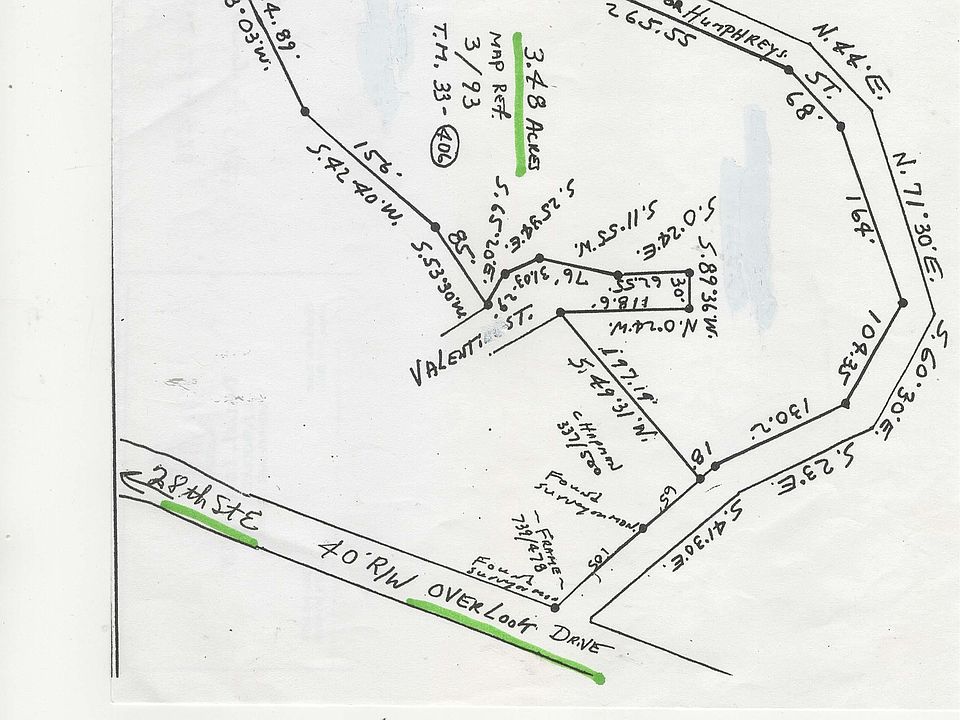 4.89'
3°03'W.
156'
S.42°40'W.
85'
S.53°30'W.
3.48 ACRES
MAP REF.
3/93
T.M. 33-
406
OR HUMPHREYS ST.
265.55
68'
N.44°E.
164'
N.71°30'E.
109.35
S.60°30'E.
130.2'
S.23°E.
18'
S.41°30'E.
65'
105'
S.65°20'E.
29'
31.03
76'
S.11°55'W.
62.55
S.0°24'E.
30'
S.89°36'W.
118.6'
N.0°24'W.
VALENTINE ST.
197.19'
S.49°31'W.
CHAPMAN
337/500
FOUND
SURVEYOR MON.
-FRAME-
739/478
FOUND
SURVEYOR MON
28th St E
40' R/W OVERLOOK DRIVE